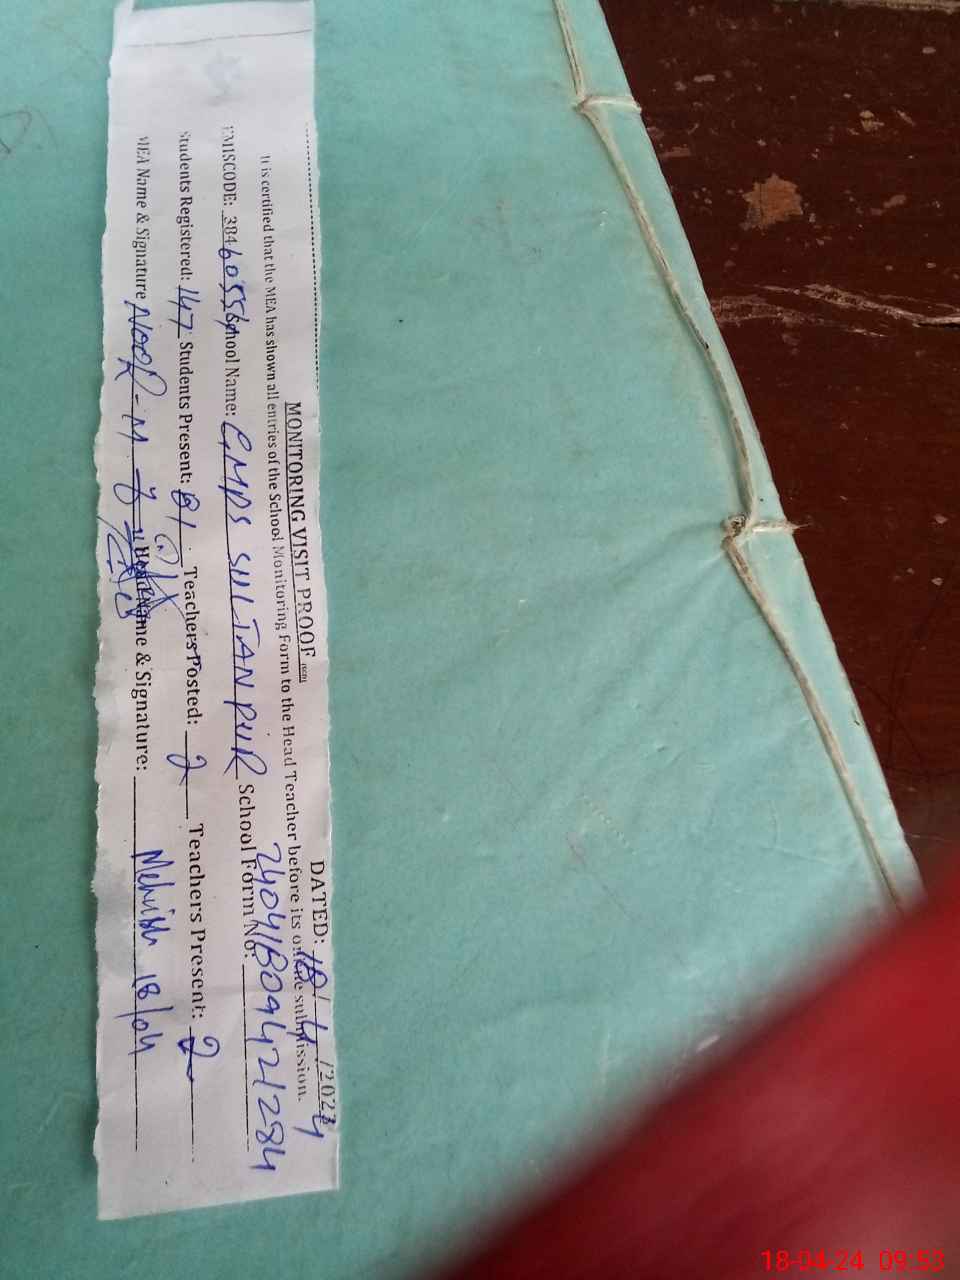 MONITORING VISIT PROOF
DATED: 18/4/2024
It is certified that the MEA has shown all entries of the School Monitoring Form to the Head Teacher before its online submission.
EMISCODE: 38460556 School Name: GMPS SULTANPUR School Form No: 24041809421284
Students Registered: 147 Students Present: 81 Teachers Posted: 2 Teachers Present: 2
MEA Name & Signature NOOR-M Head Name & Signature: Mehvish 18/04
18-04-24 09:53